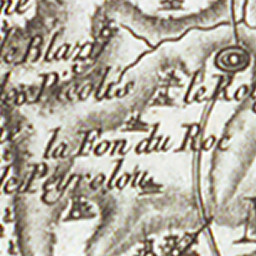 le Blazi
les Picolis
le Ro
la Fon du Roc
le Peyrolou